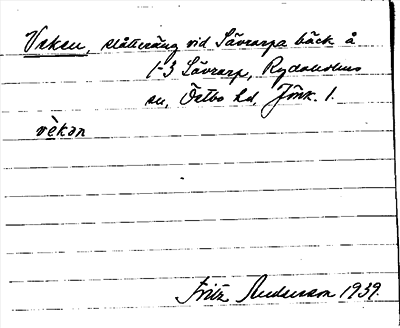 Veken, slåtteräng vid Sävrarps bäck å
1-3 Sävrarp, Rydaholms
sn, Östbo hd, Jönk. l.
vèkən
Fritz Andersson 1939.